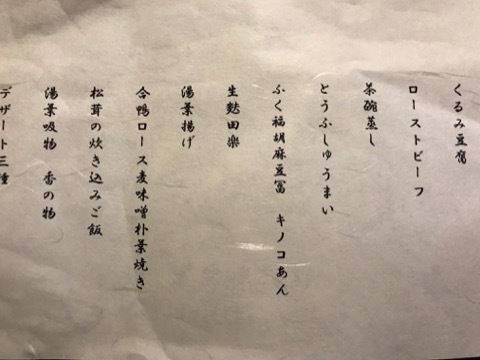 くるみ豆腐
ローストビーフ
茶碗蒸し
とうふしゅうまい
ふく福胡麻豆冨 キノコあん
生麩田楽
湯葉揚げ
合鴨ロース麦味噌朴葉焼き
松茸の炊き込みご飯
湯葉吸物 香の物
デザート三種